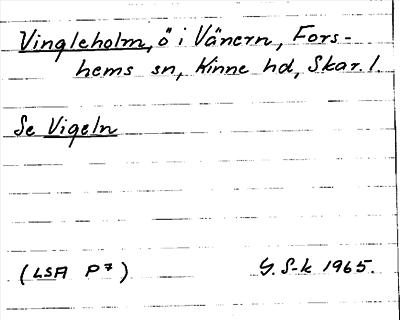 Vingleholm, ö i Vänern, Fors-
hems sn, Kinne hd, Skar. l.
Se Vigeln
(LSA P7) G. S-k 1965.